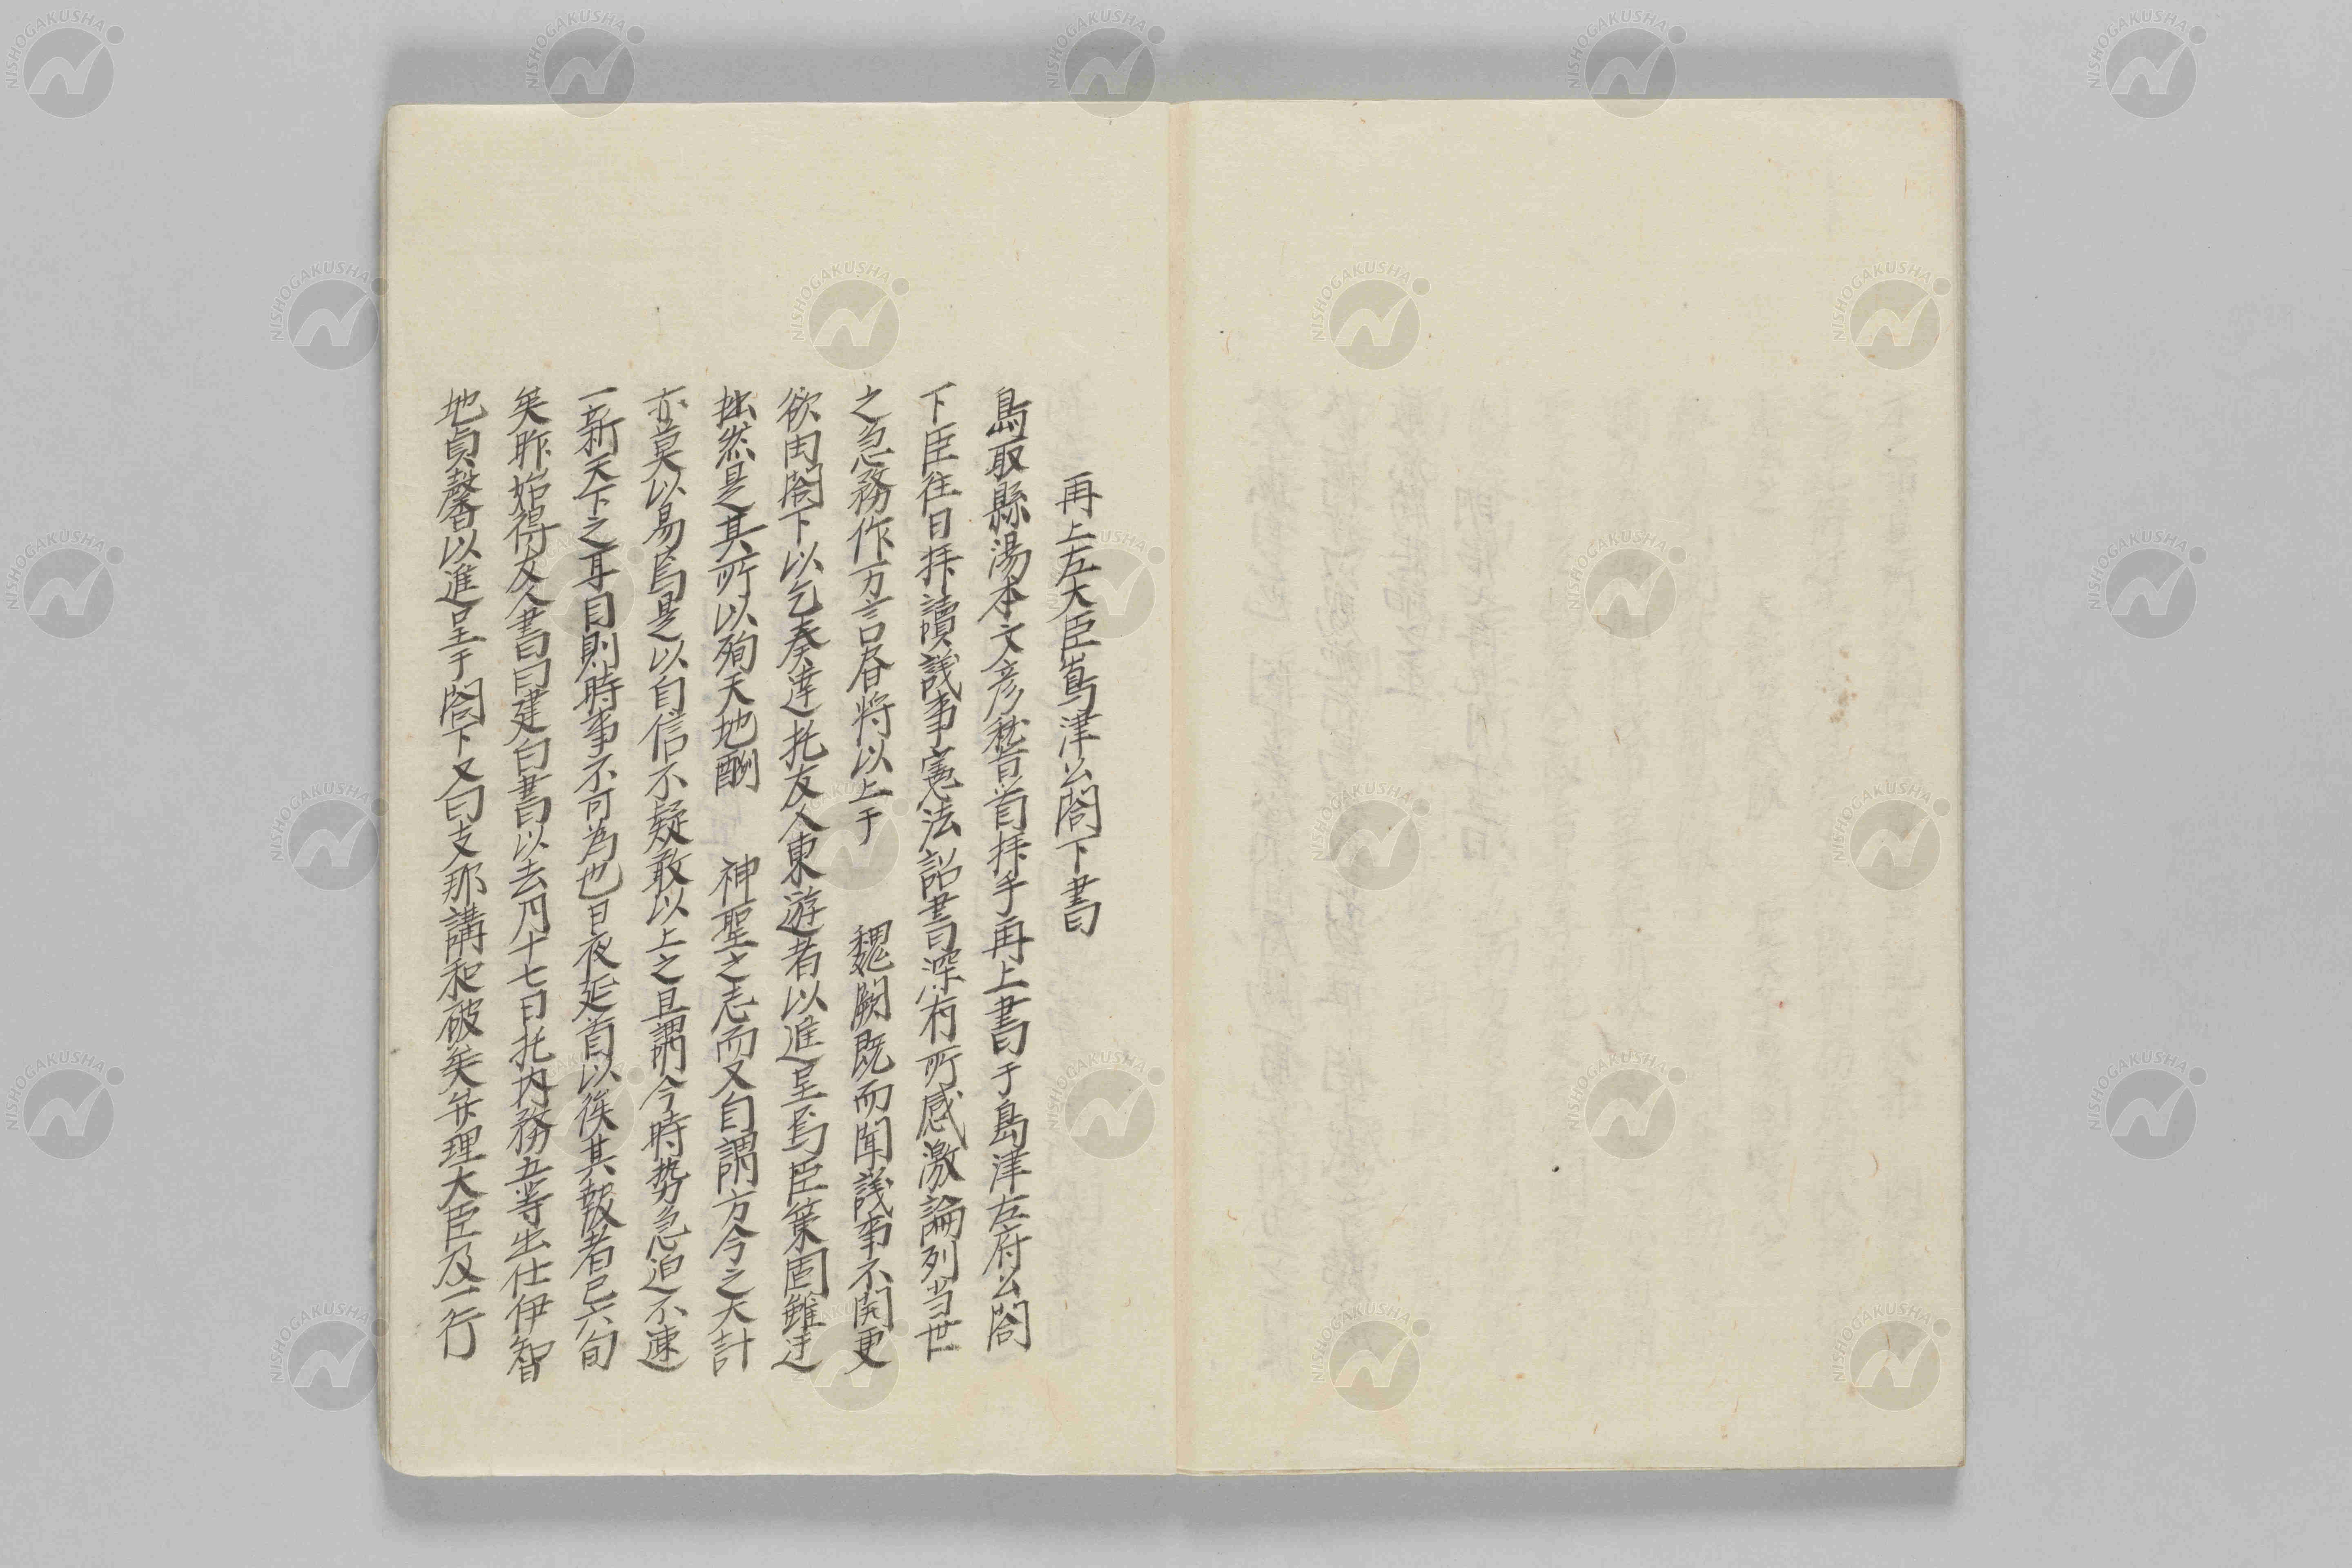 再上左大臣島津公閤下書
島取縣湯本文彦稽首拝手再上書于島津左府公閤
下臣往日拝讀議事憲法詔書深有所感激論列当世
之急務作万言昼将以上于　魏闕既而聞議事不開更
欲因閤下以乞奏達托友人東遊者以進呈焉臣策固雖迂
拙然是其所以殉天地酬　神聖之志而又自謂方今之大計
亦莫以易焉是以自信不疑敢以上之且謂今時势急迫不速
一新天下之耳目則時事不可為也日夜延首以俟其報者已六旬
矣昨始得友人書曰建白書以去月十七日托内務五等出仕伊智
地貞馨以進呈于閤下又曰支那講和破矣弁理大臣及一行
NISHOGAKUSHA